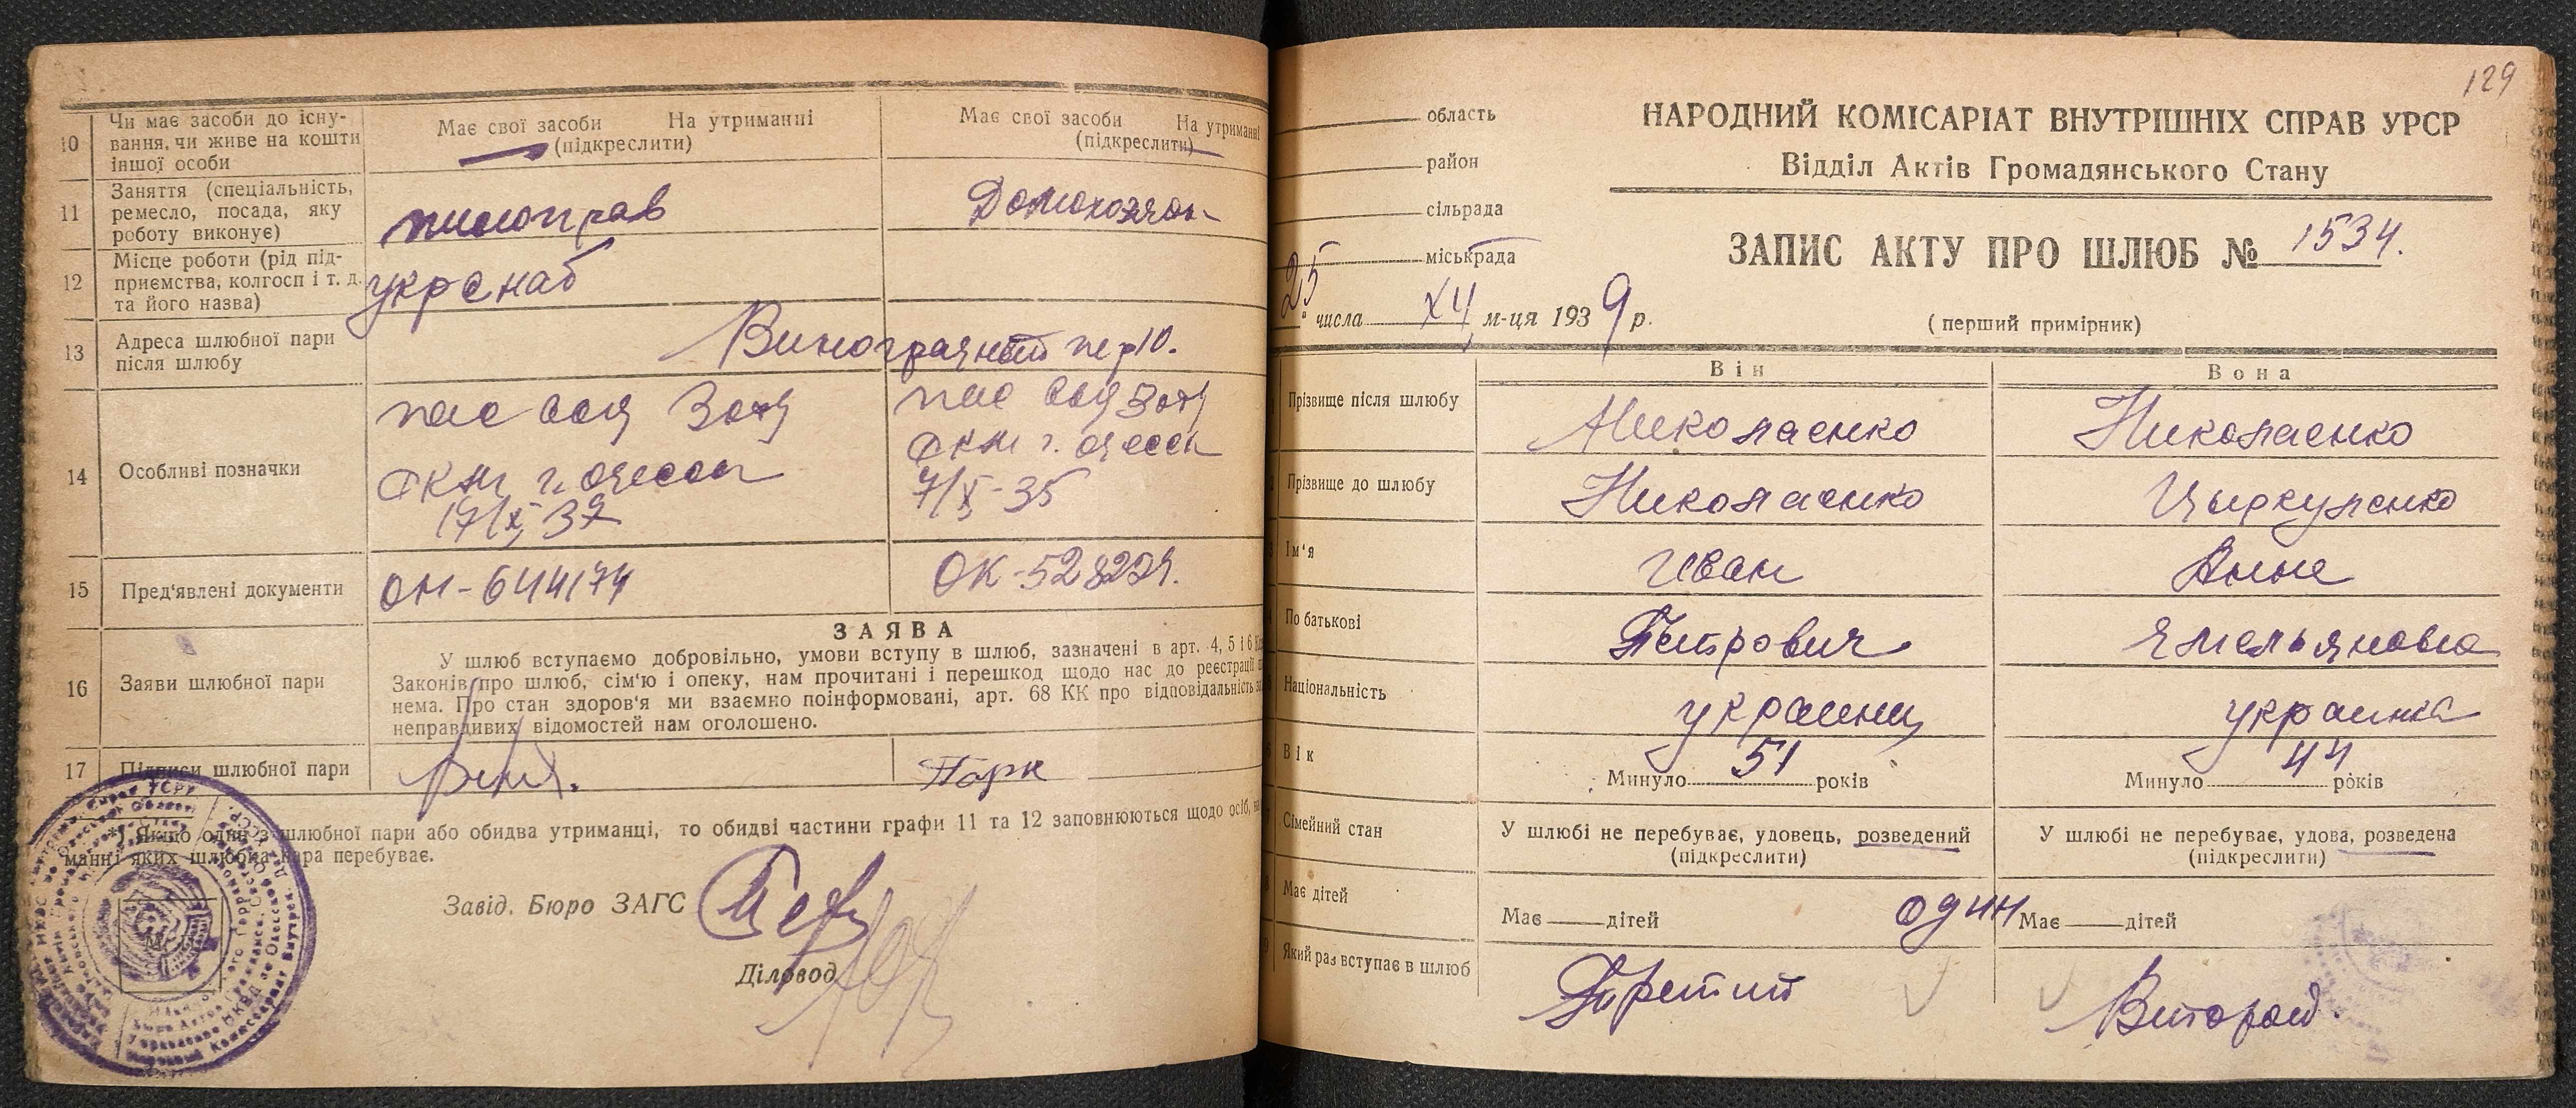 10
Чи має засоби до існу-
вання, чи живе на кошти
іншої особи
Має свої засоби На утриманні
(підкреслити)
Має свої засоби На утриманні
(підкреслити)
11
Заняття (спеціальність,
ремесло, посада, яку
роботу виконує)
пилоправ
Домохозяй-
12
Місце роботи (рід під-
приємства, колгосп і т. д.
та його назва)
укрснаб
13
Адреса шлюбної пари
після шлюбу
Виноградный пер 10.
14
Особливі позначки
пас выд 3 отд
РКМ г. Одессы
17/X 37
пас выд 3 отд
РКМ г. Одессы
7/X-35
15
Пред'явлені документи
ОН-644174
ОК-528224.
16
Заяви шлюбної пари
ЗАЯВА
У шлюб вступаємо добровільно, умови вступу в шлюб, зазначені в арт. 4, 5 і 6
Законів про шлюб, сім'ю і опеку, нам прочитані і перешкод щодо нас до реєстрації
нема. Про стан здоров'я ми взаємно поінформовані, арт. 68 КК про відповідальність за
неправдивих відомостей нам оголошено.
17
Підписи шлюбної пари
*) Якщо один з шлюбної пари або обидва утриманці, то обидві частини графи 11 та 12 заповнюються щодо осіб, на
манні яких шлюбна пара перебуває.
Завід. Бюро ЗАГС
Діловод
129
область
район
сільрада
міськрада
25 числа XII м-ця 1939 р.
НАРОДНИЙ КОМІСАРІАТ ВНУТРІШНІХ СПРАВ УРСР
Відділ Актів Громадянського Стану
ЗАПИС АКТУ ПРО ШЛЮБ № 1534.
(перший примірник)
Він
Вона
Прізвище після шлюбу
Николаенко
Николаенко
Прізвище до шлюбу
Николаенко
Цыркуленко
Ім'я
Иван
Анна
По батькові
Петрович
Емельяновна
Національність
украинец
украинка
Вік
Минуло 51 років
Минуло 44 років
Сімейний стан
У шлюбі не перебуває, удовець, розведений
(підкреслити)
У шлюбі не перебуває, удова, розведена
(підкреслити)
Має дітей
Має дітей
один
Має дітей
Який раз вступає в шлюб
Третий
Второй.